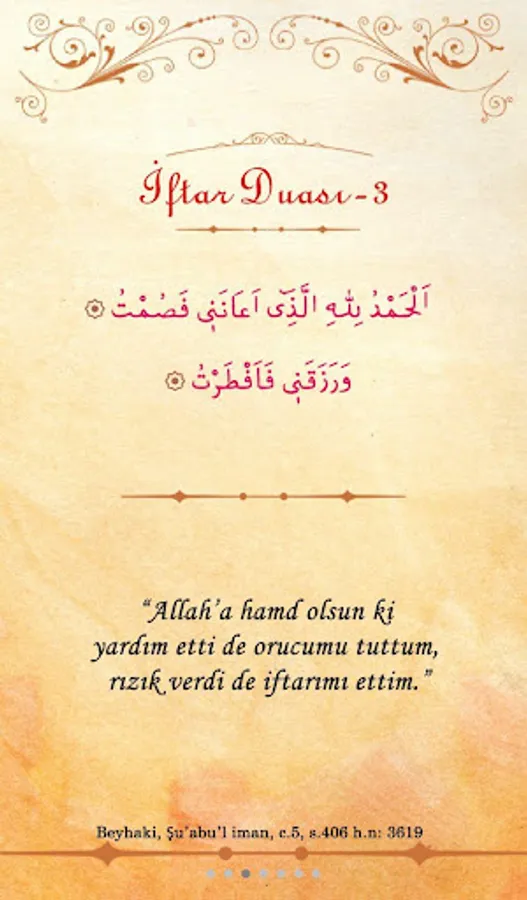 İftar Duası-3
اَلْحَمْدُ لِلّٰهِ الَّذِٓى اَعَانَنٖى فَصُمْتُ ۞
وَرَزَقَنٖى فَاَفْطَرْتُ ۞
“Allah’a hamd olsun ki
yardım etti de orucumu tuttum,
rızık verdi de iftarımı ettim.”
Beyhaki, Şu’abu’l iman, c.5, s.406 h.n: 3619